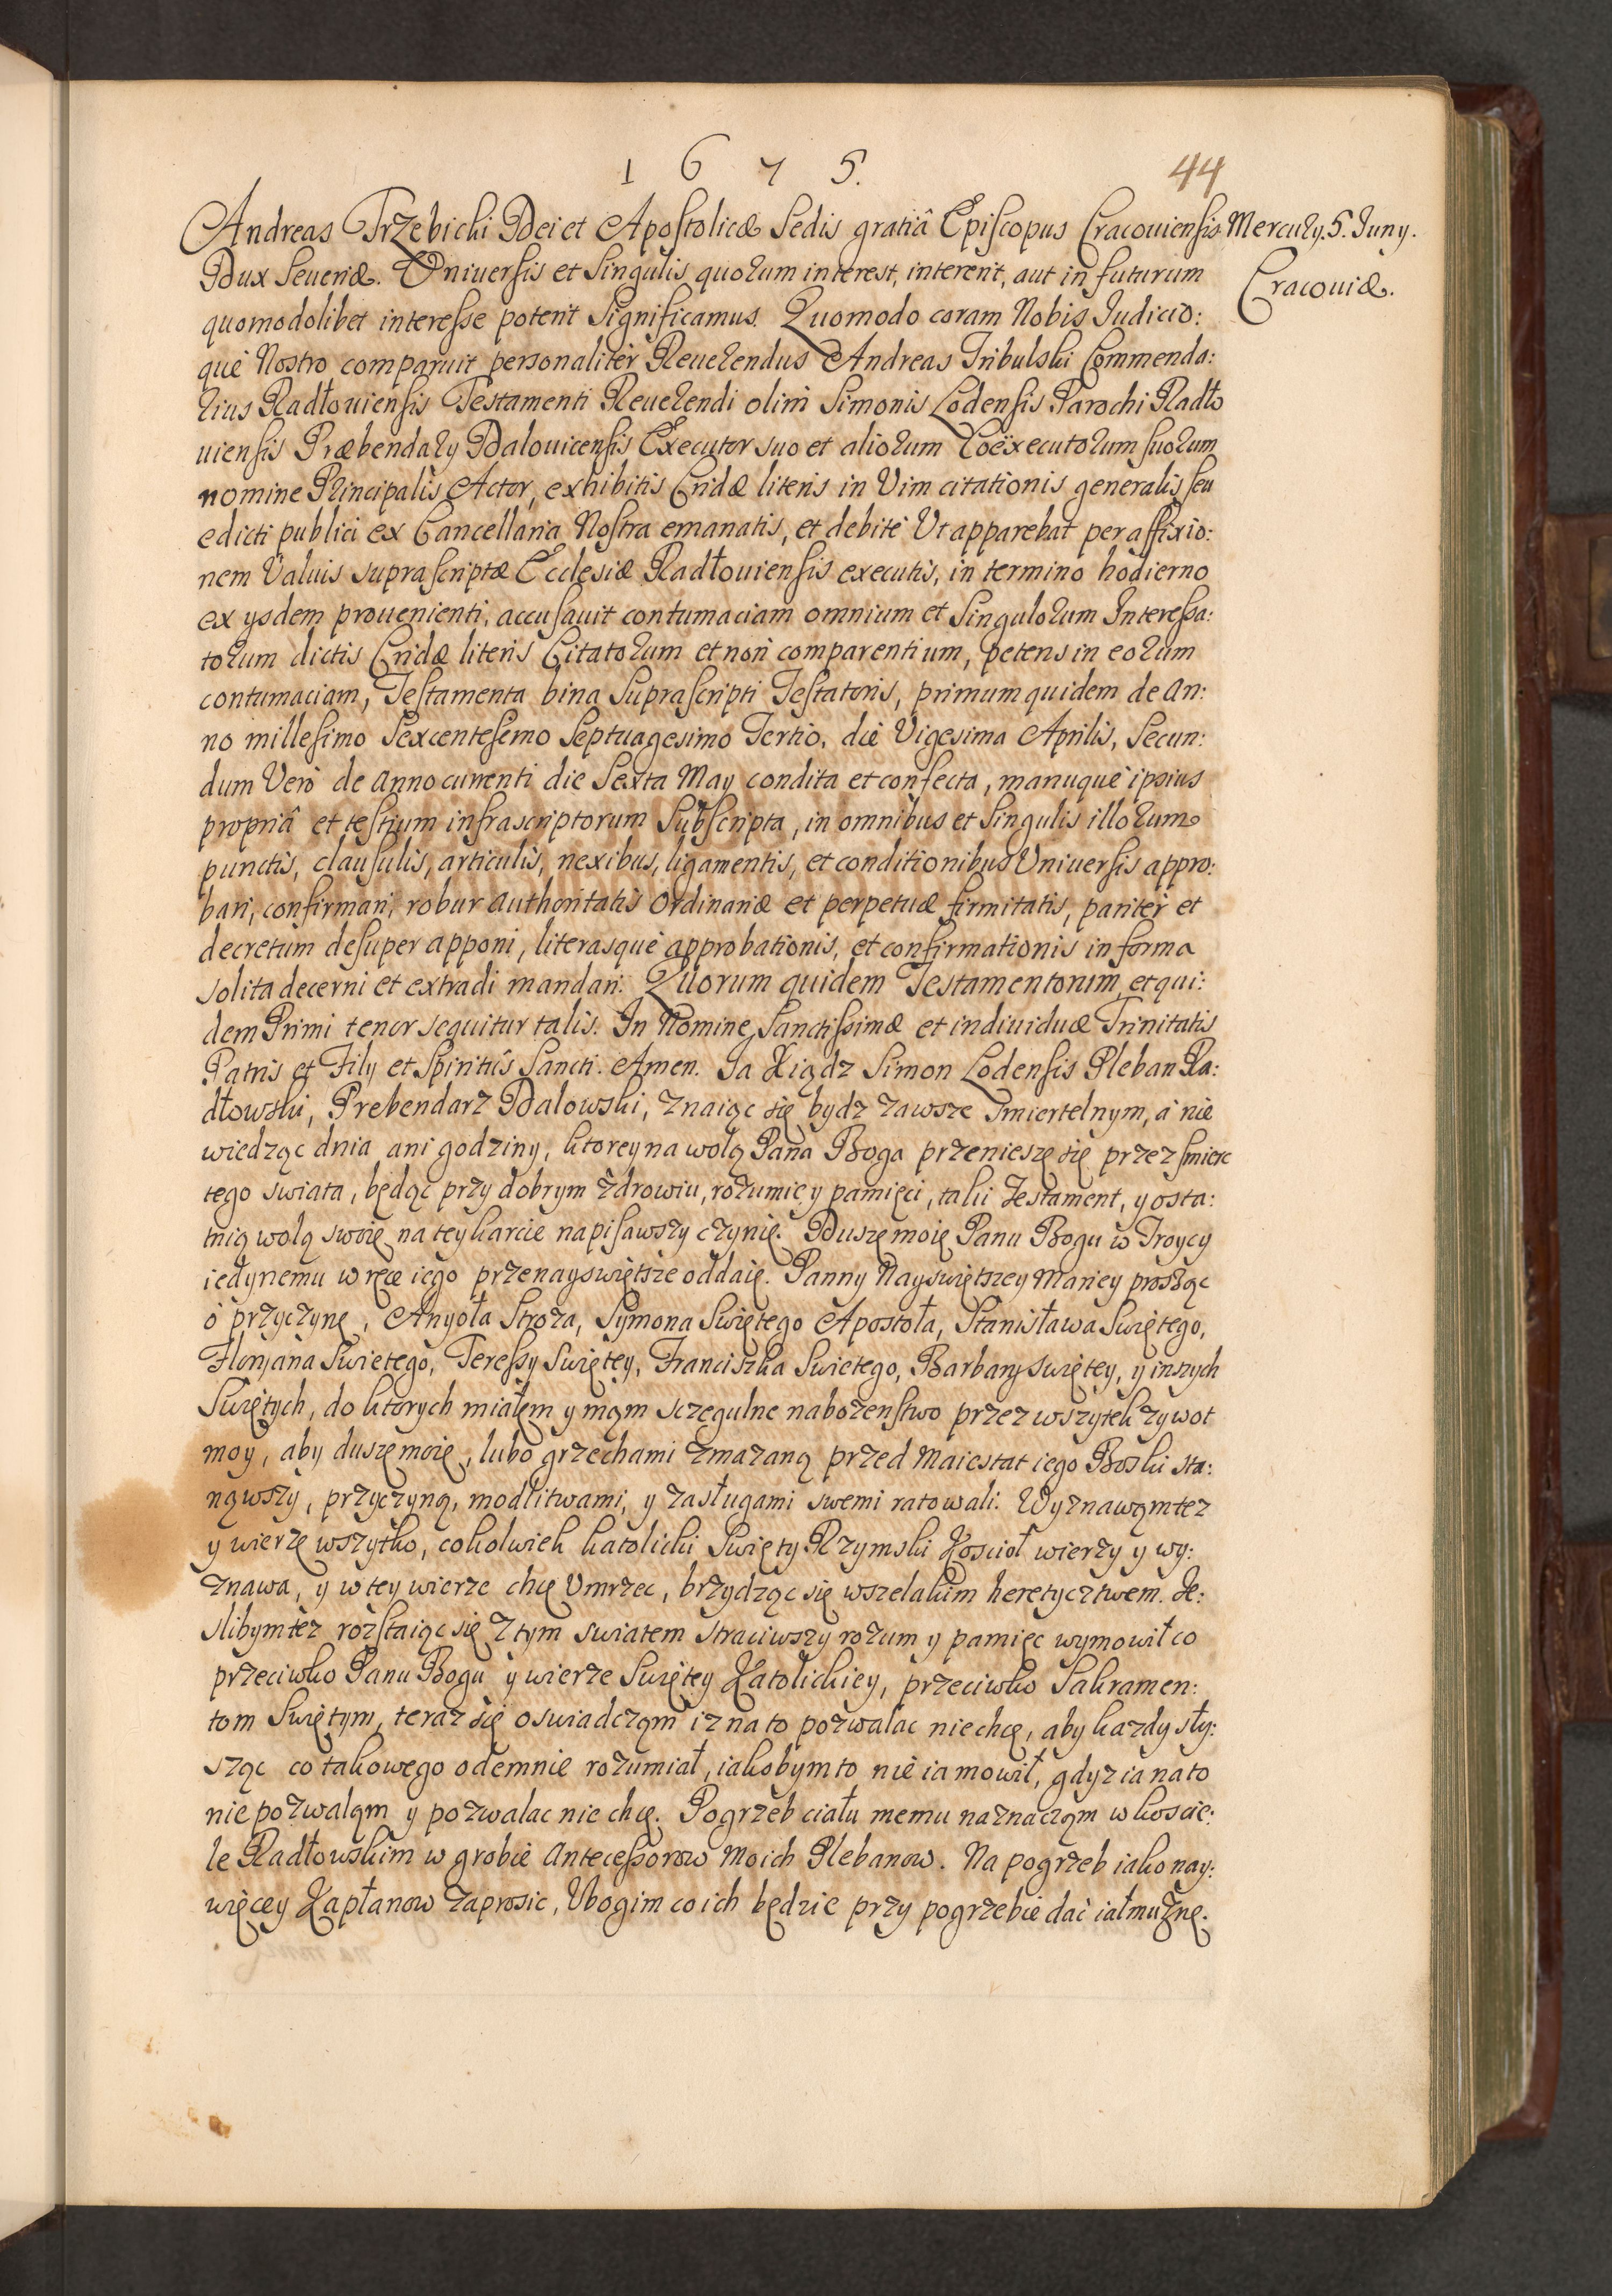 1 6 7 5.
44
Andreas Trzebicki Dei et Apostolicæ Sedis gratiâ Episcopus Cracouiensis
Mercury. 5. Juny.
Cracouiæ.
Dux Seueriæ. Uniuersis et Singulis quorum interest, intererit, aut in futurum
quomodolibet interesse poterit Significamus. Quomodo coram Nobis Judicio:
què Nostro comparuit personalitèr Reuerendus Andreas Tribulski Commenda:
rius Radłouiensis Testamenti Reuerendi olim Simonis Lodensis Parochi Radło
uiensis Præbendary Dalouicensis Executor suo et aliorum Coëxecutorum suorum
nomine Principalis Actor, exhibitis Cridæ literis in Vim citationis generalis seu
edicti publici ex Cancellaria Nostra emanatis, et debitè Ut apparebat per affixio:
nem Valuis suprascriptæ Ecclesiæ Radłouiensis executis, in termino hodierno
ex ysdem prouenienti, accusauit contumaciam omnium et Singulorum Interessa:
torum dictis Cridæ literis Citatorum et non comparentium, petens in eorum
contumaciam, Testamenta bina Suprascripti Testatoris, primum quidem de An:
no millesimo Sexcentesemo Septuagesimo Tertio, die Vigesima Aprilis, Secun:
dum Verò de Anno currenti die Sexta May condita et confecta, manuquè ipsius
propriâ et testium infrascriptorum Subscripta, in omnibus et Singulis illorum
punctis, clausulis, articulis, nexibus, ligamentis, et conditionibus Uniuersis appro:
bari, confirmari, robur Authoritatis Ordinariæ et perpetuæ firmitatis, paritèr et
decretum desuper apponi, literasquè approbationis, et confirmationis in forma
solita decerni et extradi mandari. Quorum quidem Testamentorum, et qui:
dem Primi tenor sequitur talis. In Nomine Sanctissimæ et indiuiduæ Trinitatis
Patris et Fily et Spiritûs Sancti. Amen. Ja Xiądz Simon Lodensis Pleban Ra:
dłowski, Prebendarz Dalowski, znaiąc się bydz zawsze Smiertelnym, á nie
wiedząc dnia ani godziny, ktorey na wolą Pana Boga przenieszę się przez smierc
tego swiata, będąc przy dobrym zdrowiu, rozumie y pamięci, taki Testament, y osta:
tnią wolą swoię na tey karcie napisawszy czynię. Duszę moię Panu Bogu w Troycy
iedynemu w ręce iego przenayswiętsze oddaię. Panny Nayswiętszey Mariey prosząc
o przyczynę, Anyoła Stroza, Symona Swiętego Apostoła, Stanisława Swiętego,
Floryana Swietego, Teressy Swiętey, Franciszka Swietego, Barbary swiętey, y inszych
Swiętych, do ktorych miałem y mąm sczegulne nabozenstwo przez wszytek zywot
moy, aby duszę moię, lubo grzechami zmazaną przed Maiestat iego Boski sta:
nąwszy, przyczyną, modlitwami, y zasługami swemi ratowali. Wyznawąm tez
y wierzę wszytko, cokolwiek katolicki Swięty Rzymski Koscioł wierzy y wy:
znawa, y w tey wierze chcę Umrzec, brzydząc się wszelakim heretyctwem. Je:
slibym tez rozstaiąc się z tym swiatem straciwszy rozum y pamięc wymowił co
przeciwko Panu Bogu y wierze Swiętey Katolickiey, przeciwko Sakramen:
tom Swiętym, teraz się oswiadcząm iz na to pozwalac nie chcę, aby kazdy sły:
sząc co takowego odemnie rozumiał, iakobym to nie ia mowił, gdyz ia na to
nie pozwaląm y pozwalac nie chcę. Pogrzeb ciału memu naznacząm w koscie:
le Radłowskim w grobie Antecessorow Moich Plebanow. Na pogrzeb iako nay:
więcey Kapłanow zaprosic, Ubogim co ich będzie przy pogrzebie dać iałmuznę.